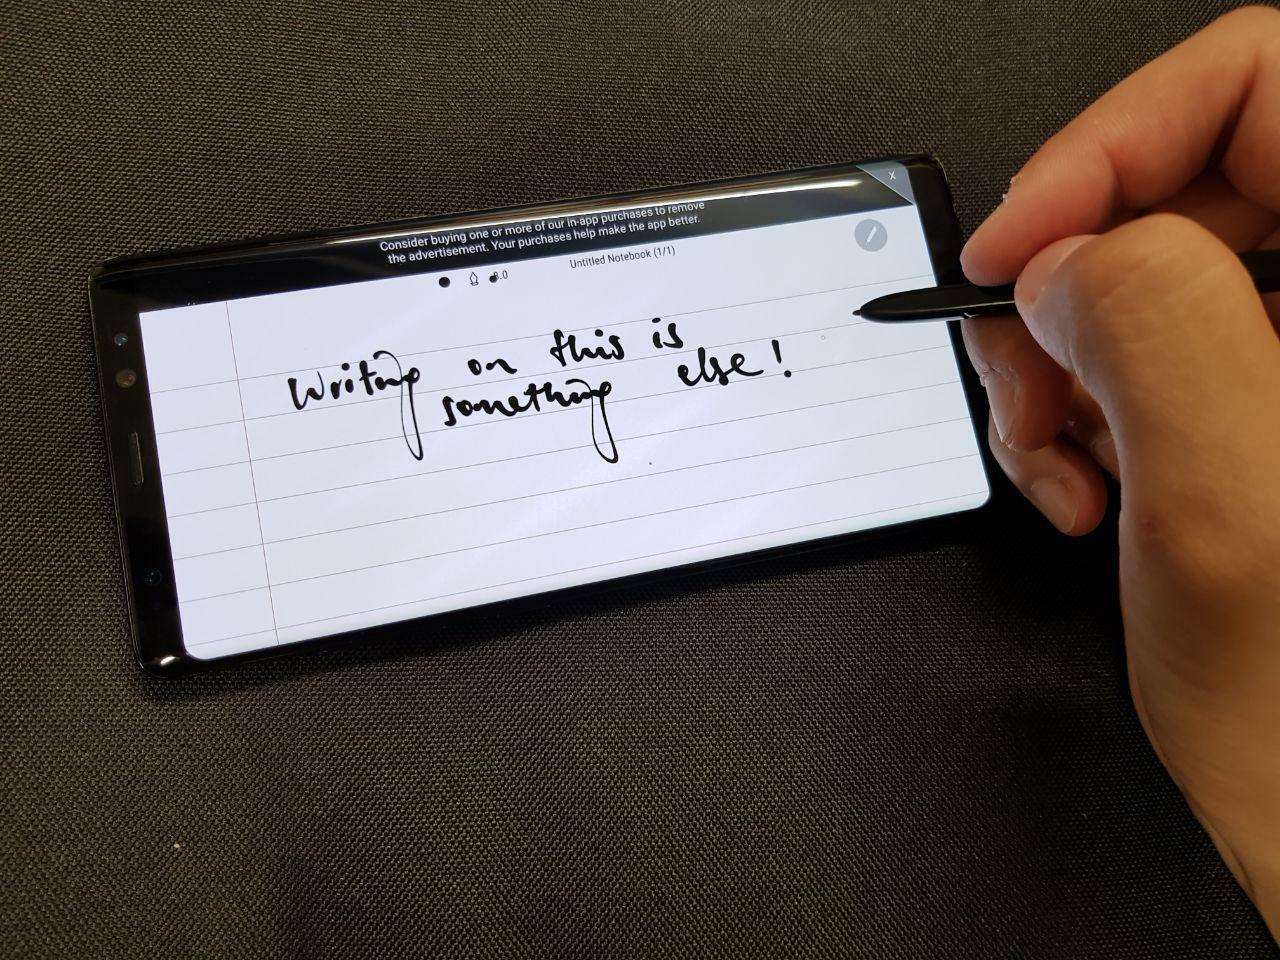 X
Consider buying one or more of our in-app purchases to remove
the advertisement. Your purchases help make the app better.
Untitled Notebook (1/1)
Writing on this is
something else!